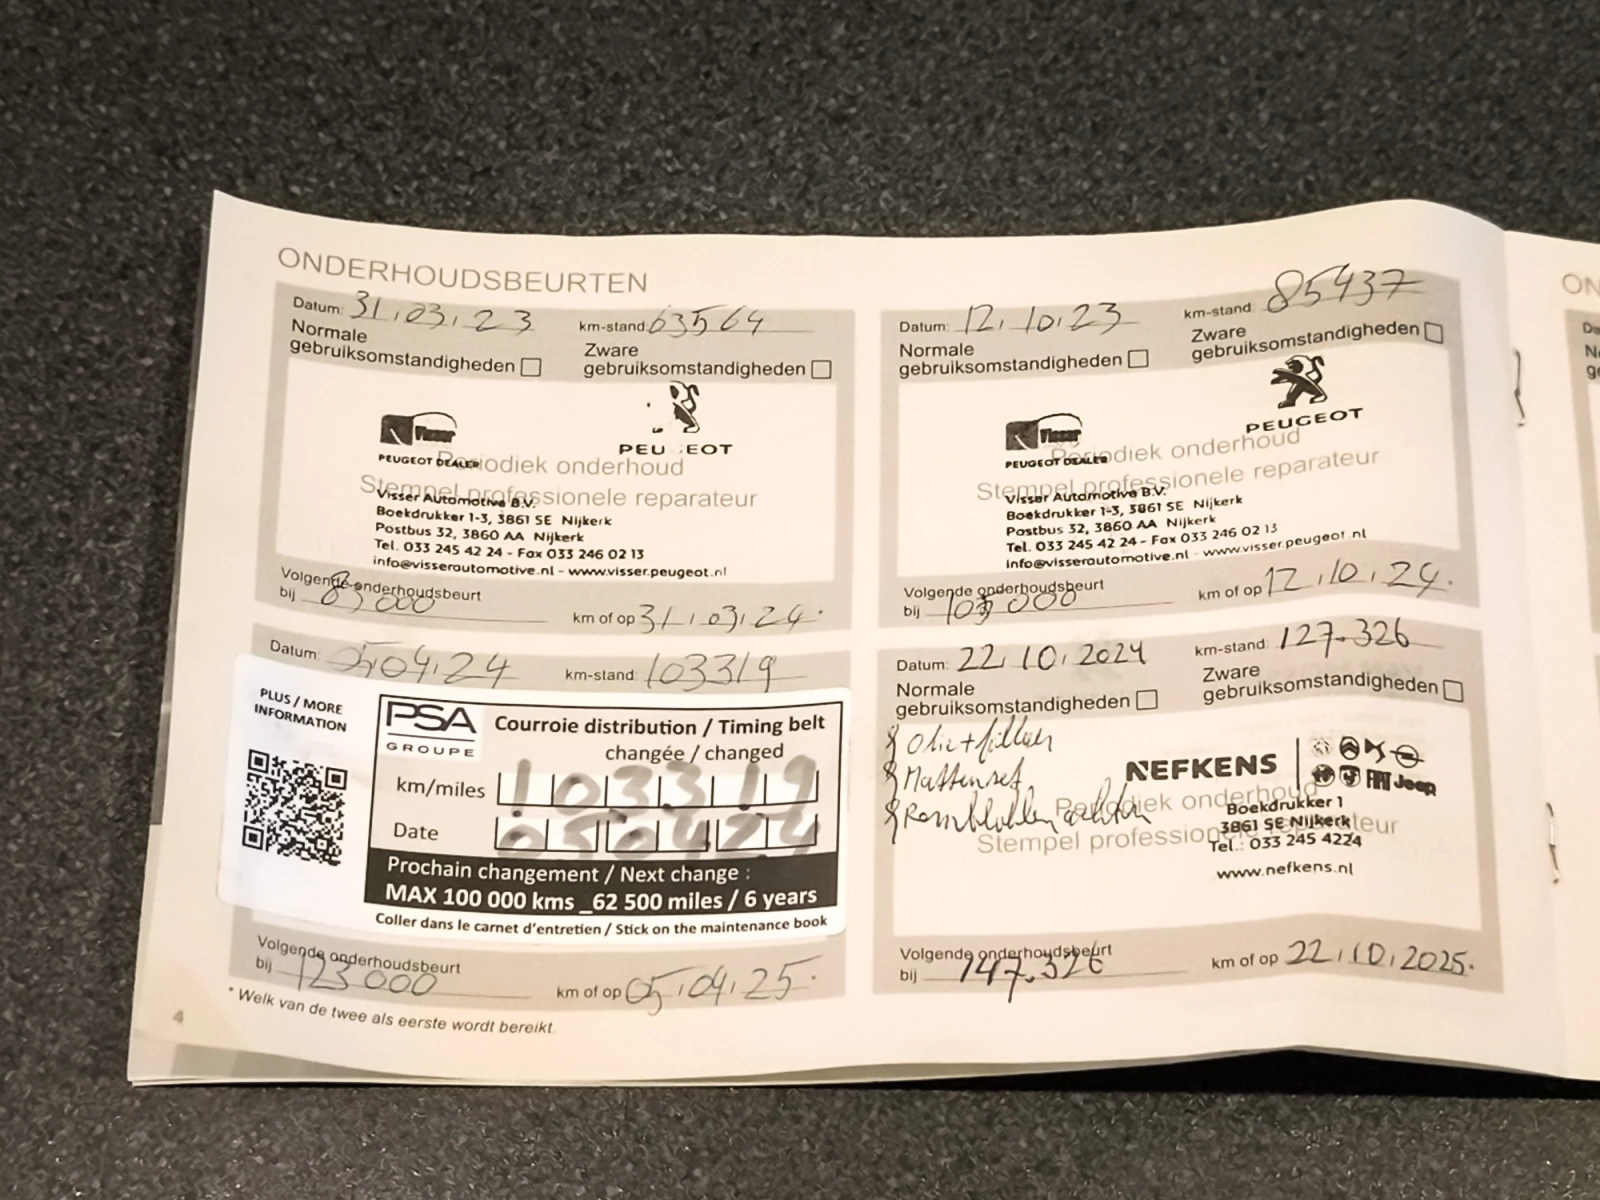 ONDERHOUDSBEURTEN
Datum: 31.03.23 km-stand: 63564
Normale gebruiksomstandigheden
Zware gebruiksomstandigheden
Visser
PEUGEOT DEALER
PEUGEOT
Periodiek onderhoud
Stempel professionele reparateur
Visser Automotive B.V.
Boekdrukker 1-3, 3861 SE Nijkerk
Postbus 32, 3860 AA Nijkerk
Tel. 033 245 42 24 - Fax 033 246 02 13
info@visserautomotive.nl - www.visser.peugeot.nl
Volgende onderhoudsbeurt
bij 83000 km of op 31.03.24.
Datum: 12.10.23 km-stand: 85437
Normale gebruiksomstandigheden
Zware gebruiksomstandigheden
Visser
PEUGEOT DEALER
PEUGEOT
Periodiek onderhoud
Stempel professionele reparateur
Visser Automotive B.V.
Boekdrukker 1-3, 3861 SE Nijkerk
Postbus 32, 3860 AA Nijkerk
Tel. 033 245 42 24 - Fax 033 246 02 13
info@visserautomotive.nl - www.visser.peugeot.nl
Volgende onderhoudsbeurt
bij 103000 km of op 12.10.24.
Datum: 05.04.24 km-stand: 103319
PLUS / MORE
INFORMATION
PSA
GROUPE
Courroie distribution / Timing belt
changée / changed
km/miles 103319
Date 050424
Prochain changement / Next change :
MAX 100 000 kms _62 500 miles / 6 years
Coller dans le carnet d'entretien / Stick on the maintenance book
Volgende onderhoudsbeurt
bij 123000 km of op 05.04.25.
Datum: 22.10.2024 km-stand: 127.326
Normale gebruiksomstandigheden
Zware gebruiksomstandigheden
Olie + filter
Mattenset
Remblokken achter
NEFKENS
FIAT Jeep
Periodiek onderhoud
Stempel professionele reparateur
Boekdrukker 1
3861 SE Nijkerk
Tel.: 033 245 4224
www.nefkens.nl
Volgende onderhoudsbeurt
bij 147.326 km of op 22.10.2025.
* Welk van de twee als eerste wordt bereikt.
4
ON